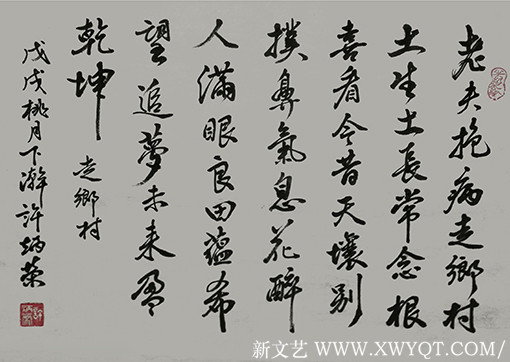 老夫抱病走鄉村
土生土長常念根
喜看今昔天壤別
撲鼻氣息花醉
人滿眼良田蘊希
望追夢未来盈
乾坤 走鄉村
戊戌桃月下瀚許炳荣
新文艺 WWW.XWYQT.COM/